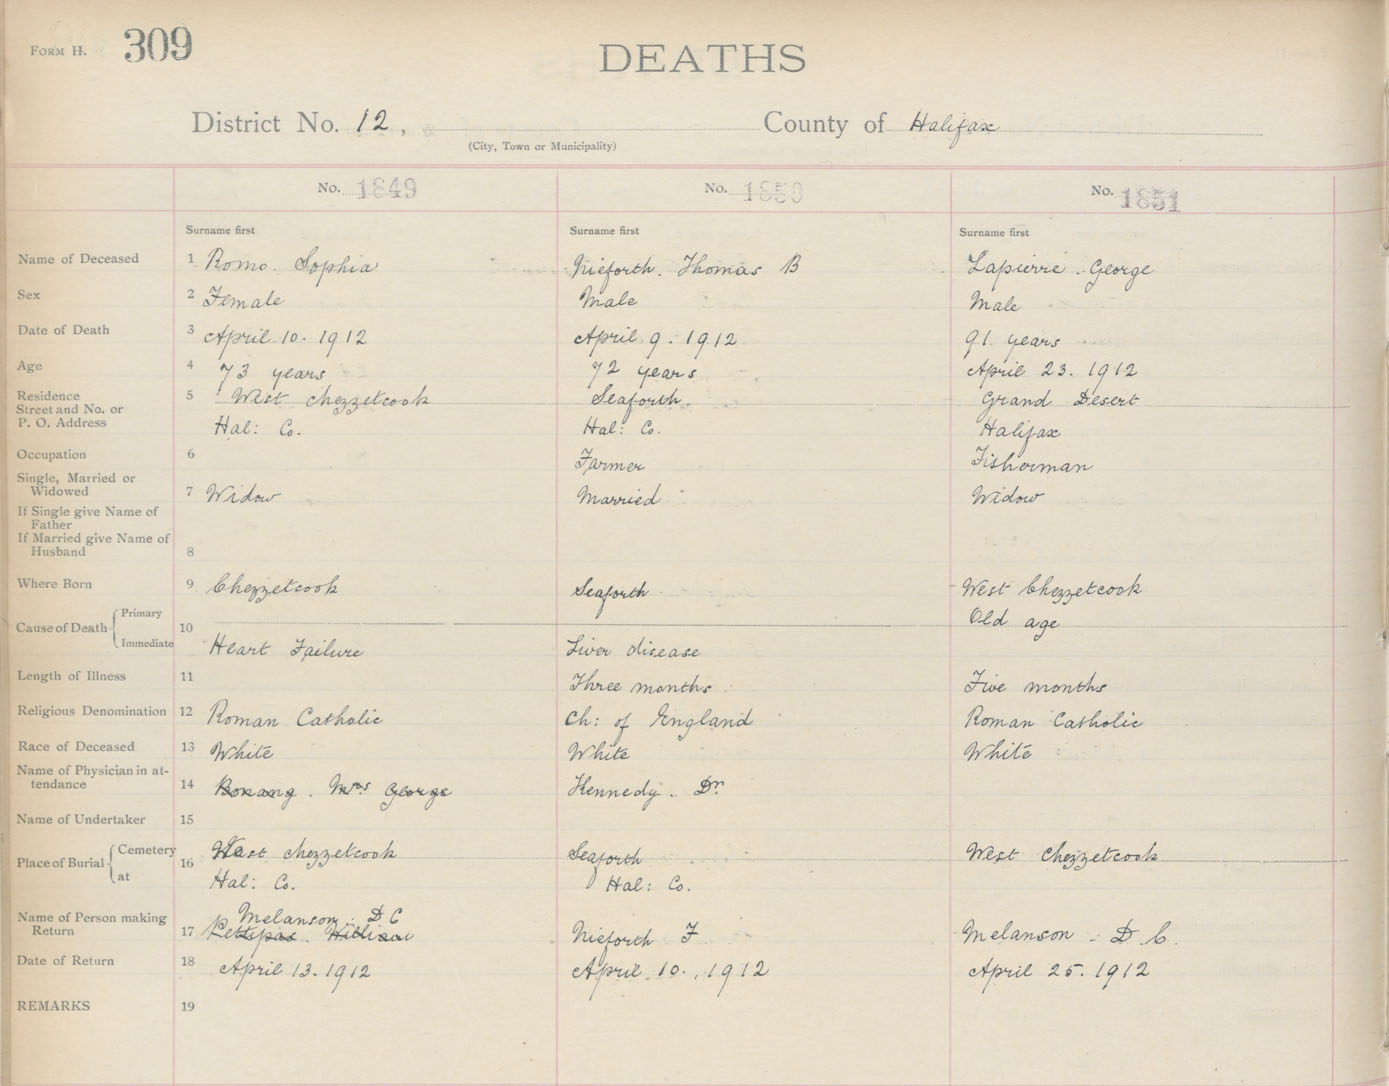 FORM H. 309
DEATHS
District No. 12, County of Halifax
(City, Town or Municipality)
No. 1849 No. 1850 No. 1851
Surname first Surname first Surname first
Name of Deceased 1 Romo. Sophia Nieforth. Thomas B Lapierre. George
Sex 2 Female Male Male
Date of Death 3 April 10. 1912 April 9. 1912 91 years
Age 4 73 years 72 years April 23. 1912
Residence 5 West Chezzetcook Seaforth. Grand Desert
Street and No. or
P. O. Address Hal: Co. Hal: Co. Halifax
Occupation 6 Farmer Fisherman
Single, Married or
Widowed 7 Widow Married Widow
If Single give Name of
Father
If Married give Name of
Husband 8
Where Born 9 Chezzetcook Seaforth West Chezzetcook
Primary Old age
Cause of Death 10
Immediate Heart Failure Liver disease
Length of Illness 11 Three months Five months
Religious Denomination 12 Roman Catholic Ch: of England Roman Catholic
Race of Deceased 13 White White White
Name of Physician in at-
tendance 14 Bonang. Mrs George Kennedy. Dr.
Name of Undertaker 15
Cemetery West Chezzetcook Seaforth West Chezzetcook
Place of Burial 16
at Hal: Co. Hal: Co.
Name of Person making Melanson. D C
Return 17 Pettipas. William Nieforth F Melanson. D. C.
Date of Return 18 April 13. 1912 April 10., 1912 April 25. 1912
REMARKS 19